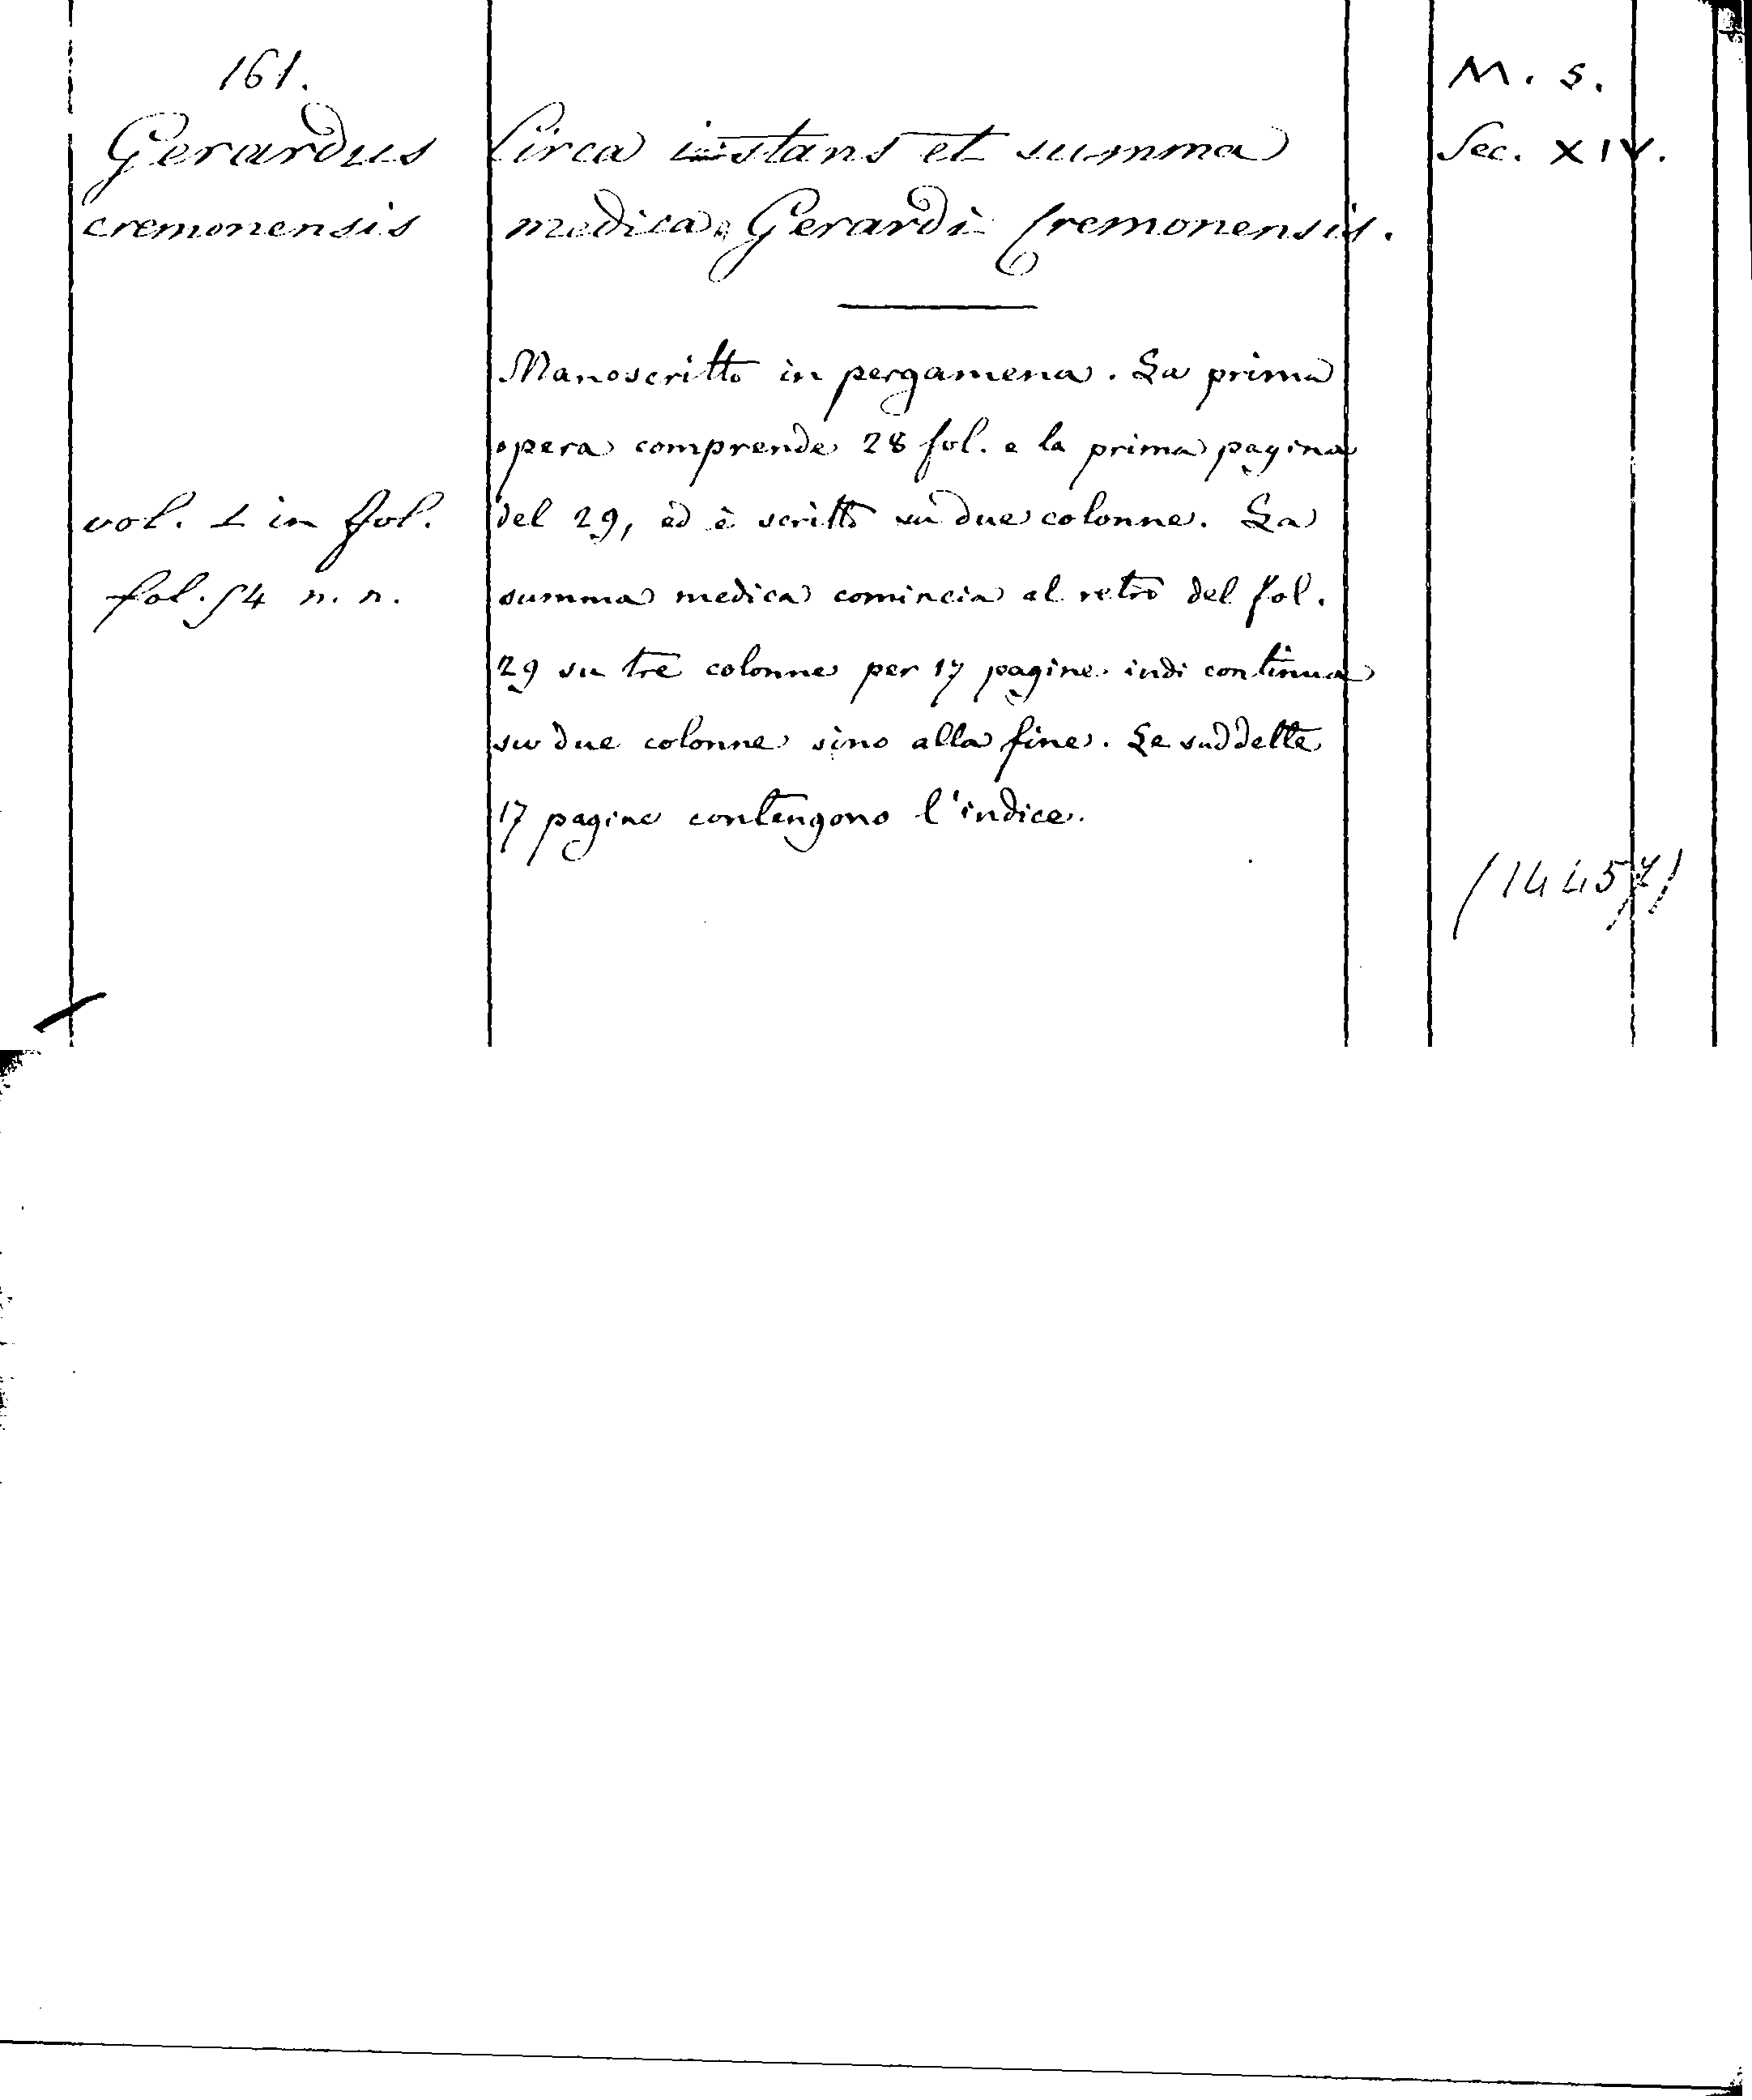 161.
Gerardus
cremonensis
vol. 1 in fol.
fol. 54 n. n.
Circa instans et summa
medica Gerardi Cremonensis.
Manoscritto in pergamena. La prima
opera comprende 28 fol. e la prima pagina
del 29, ed è scritto su due colonne. La
summa medica comincia al retro del fol.
29 su tre colonne per 17 pagine indi continua
su due colonne sino alla fine. Le suddette
17 pagine contengono l'indice.
M. s.
Sec. XIV.